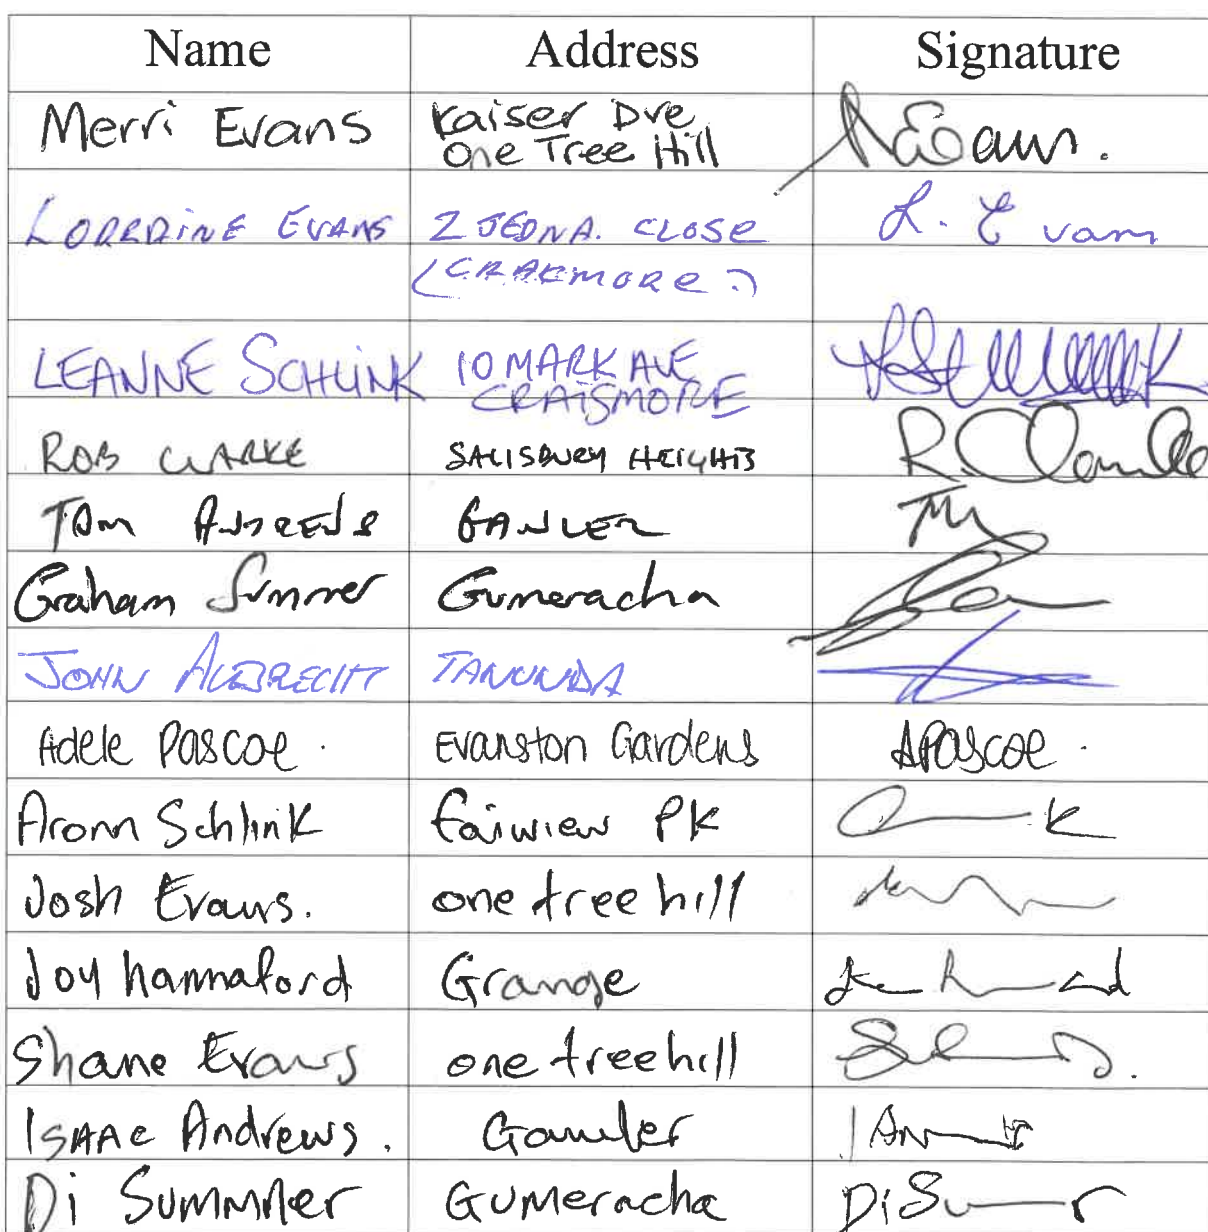 Name Address Signature
Merri Evans Kaiser Dve
One Tree Hill
LORRAINE EVANS 2 JEDNA. CLOSE L. Evans
(CRAKMORE.)
LEANNE SCHLINK 10 MARK AVE
CRAIGMORE
ROB CLARKE SALISBURY HEIGHTS
TOM ANDREWS GAWLER
Graham Summer Gumeracha
JOHN ALBRECHT TANUNDA
Adele Pascoe. Evanston Gardens APascoe.
Aronn Schlink Fairview PK
Josh Evans. one tree hill
Joy hannaford Grange
Shane Evans one treehill
ISAAC Andrews. Gawler
Di Summer Gumeracha